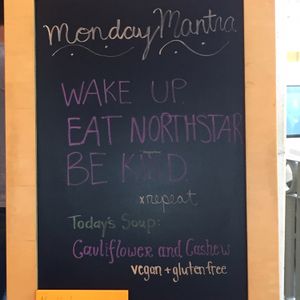 Monday Mantra
WAKE UP.
EAT NORTHSTAR
BE KIND.
x repeat
Today's Soup:
Cauliflower and Cashew
vegan + gluten-free